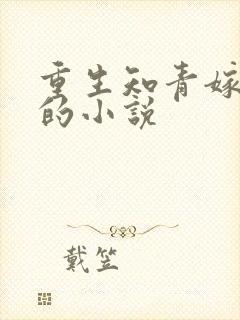 重生知青嫁
的小说
戴笠